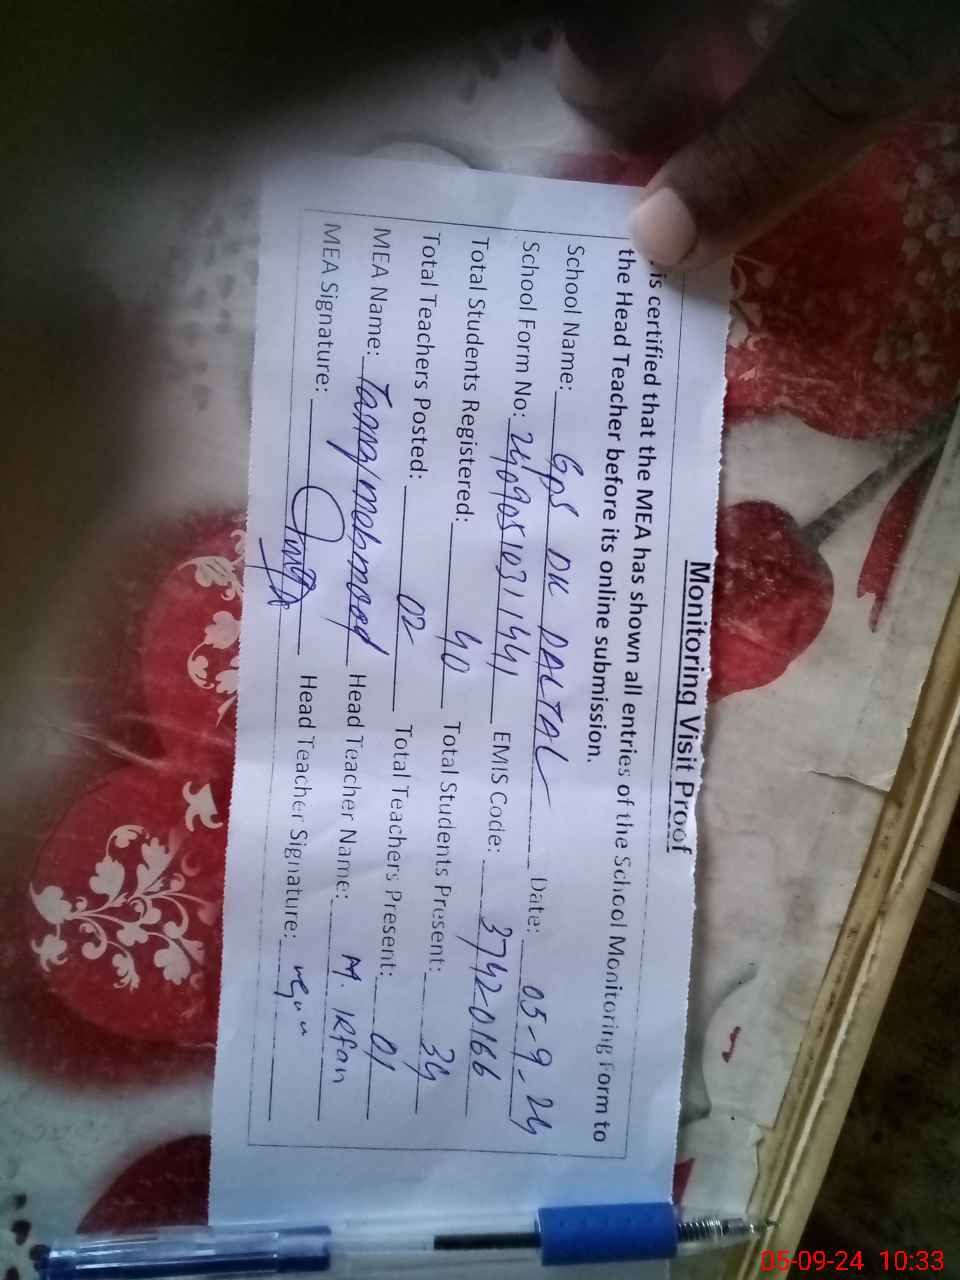 Monitoring Visit Proof
is certified that the MEA has shown all entries of the School Monitoring Form to
the Head Teacher before its online submission.
School Name: GPS DK DALTAL Date: 05-9-24
School Form No: 2409051031441 EMIS Code: 37420166
Total Students Registered: 40 Total Students Present: 34
Total Teachers Posted: 02 Total Teachers Present: 01
MEA Name: mehmood Head Teacher Name: M. IRfan
MEA Signature: Head Teacher Signature:
05-09-24 10:33